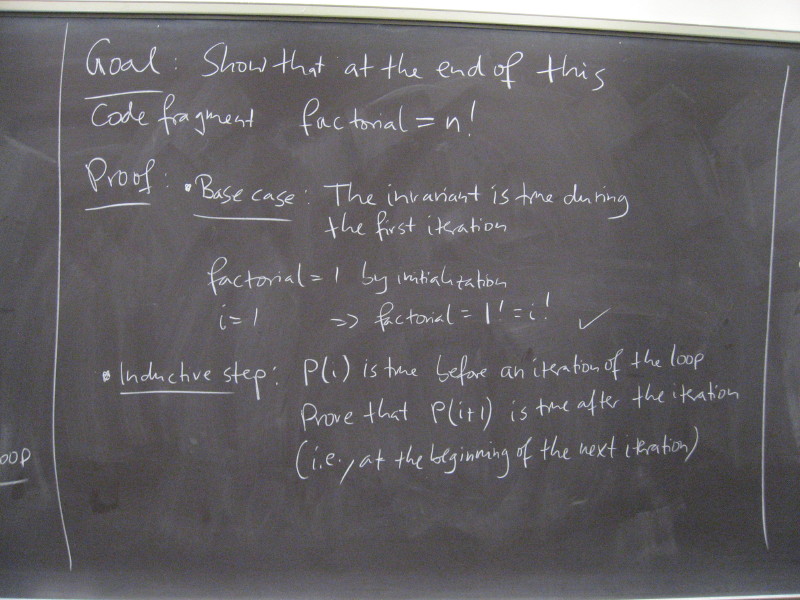 Goal: Show that at the end of this
Code fragment factorial = n!
Proof: • Base case: The invariant is true during
the first iteration
factorial = 1 by initialization
i = 1 => factorial = 1! = i! ✓
• Inductive step: P(i) is true before an iteration of the loop
Prove that P(i+1) is true after the iteration
(i.e., at the beginning of the next iteration)
OOP